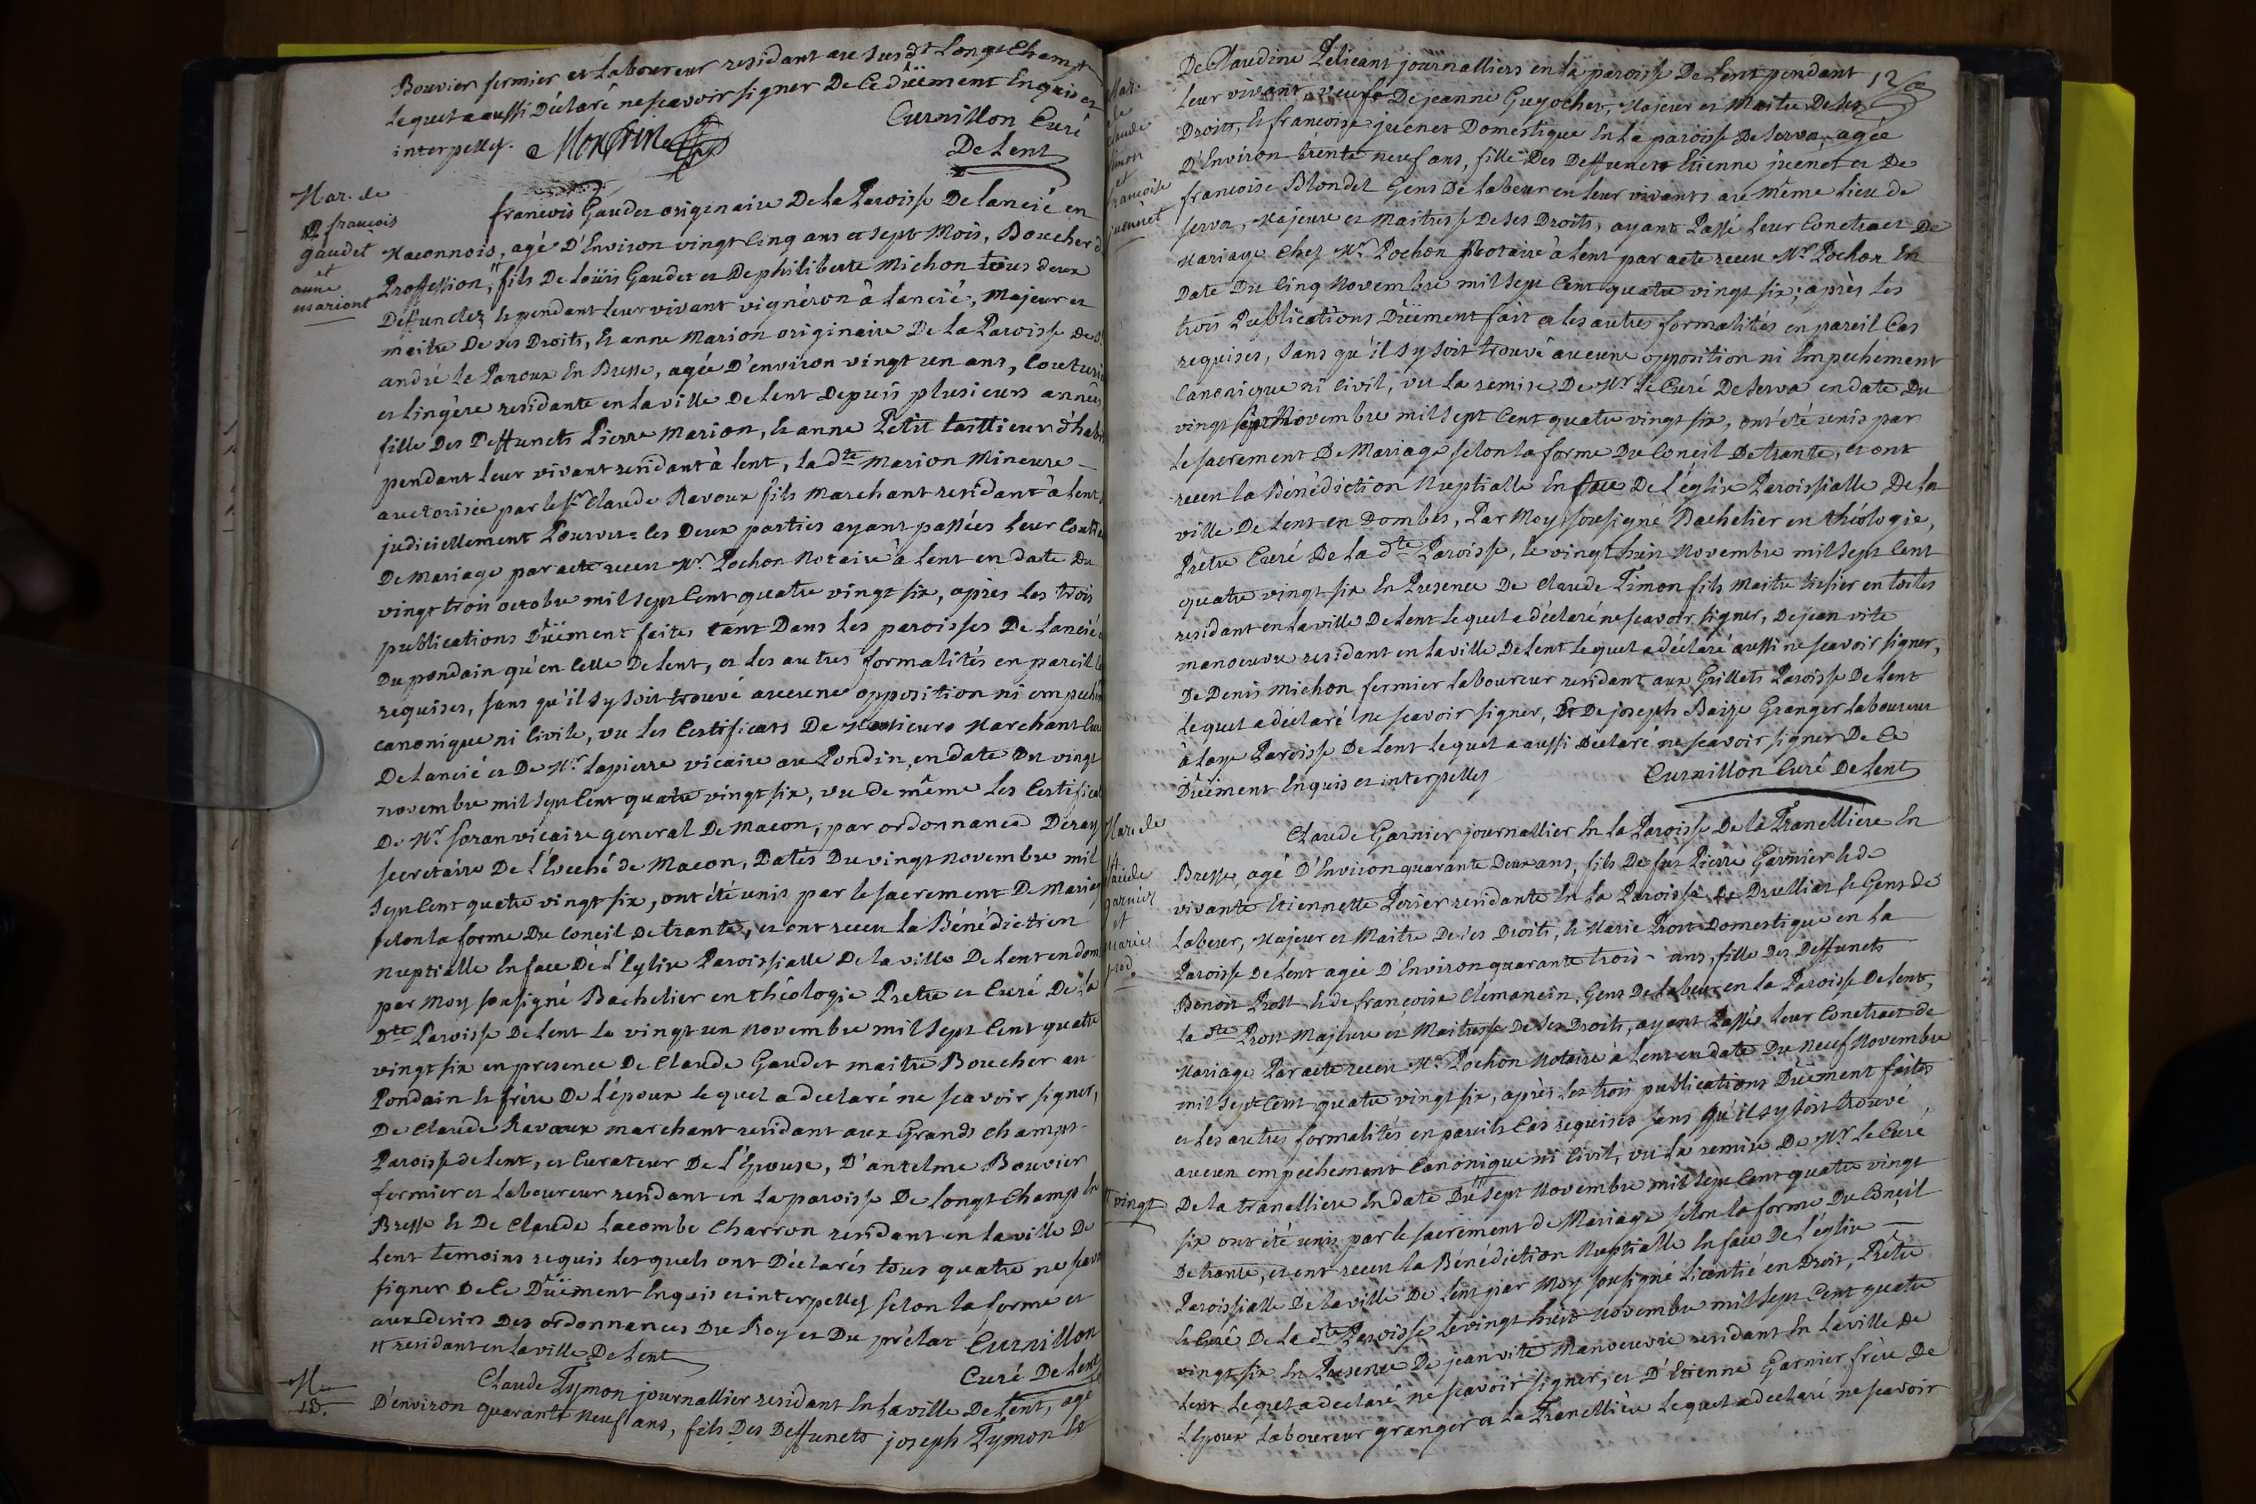 Bouvier fermier et Laboureur residant au susdt Longt Champt
lequel a aussi Déclaré ne scavoir signer De Ce düement Enquis et
interpellez.
Curnillon Curé
De Lent
Mar. de
françois
gaudet
et
anne
mariont
francois Gaudet originaire De La Paroisse De lancié en
Maconnois, agé D'Environ vingt Cinq ans et sept Mois, Boucher d
Proffession, fils De Loüis Gaudet et De philiberte Michon tous deux
Deffunctez et pendant leur vivant vigneron à lancié, Majeur et
maitre De ses Droits, Et anne Marion originaire De la Paroisse de St
andré le Panoux En Bresse, agée D'environ vingt un ans, Couturie
et lingère residante en la ville De lent Depuis plusieurs année
fille Des Deffuncts Pierre Marion, Et anne Petit taillieur d'hab
pendant leur vivant residant à lent, la dte Marion Mineure
auctorisée par le Sr Claude Ravoux fils Marchant residant à lent
judiciellement Pourvu= les Deux parties ayant passées leur Contr
De Mariage par acte receu Mr. Pochon Notaire à lent en date Du
vingt trois octobre mil sept Cent quatre vingt six, après les trois
publications Düement faites tant Dans les paroisses De lancié
Du pondain qu'en Celle De lent, et les autres formalités en pareil C
requises, sans qu'il sy soit trouvé aucune opposition ni empeche
canonique ni Civile, vu les Certificats De Messieurs Marchant Cur
De lancié et De Mr. lapierre vicaire au Pondin, en date Du vingt
novembre mil sept Cent quatre vingt six, vu de même les Certifica
De Mr. Soran vicaire general De macon, par ordonnance Deray
secretaire De l'Eveché de Macon, Datés Du vingt novembre mil
sept Cent quatre vingt six, ont été unis par le sacrement De Mariag
selon la forme Du Concil De trante, et ont receu la Bénédiction
Nuptialle En face De L'Eglise Paroissialle De la ville De lent en dom
par Moy sousigné Bachelier en théologie Pretre et Curé De la
Dte Paroisse De lent Le vingt un Novembre mil sept Cent quatre
vingt six en presence De Claude Gaudet maitre Boucher au
Pondain et frère De l'époux lequel a declaré ne scavoir signer,
De Claude Ravoux marchant residant aux Grands Champs
Paroisse de lent, et Curateur De L'Epouse, D'antelme Bouvier
fermier et Laboureur residant en la paroisse De Longt Champt En
Bresse Et De Claude Lacombe Charron residant en la ville De
Lent temoins requis lesquels ont Déclarés tous quatre ne scav
signer De Ce Düement Enquis et interpellez selon la forme et
aux desirs Des ordonnances Du Roy et Du prélat Curnillon
residant en la ville De Lent
Curé De Lent
M
13.
Claude Tymon journallier residant En la ville De lent, agé
D'environ quarante neuf ans, fils Des Deffuncts joseph Tymon Et
12
Mar.
de
Claude
timon
et
francoise
juennet
De Claudine Pelicant journalliers en la paroisse De Lent pendant
Leur vivant, veuf De jeanne Guyochet, Majeur et Maitre De ses
Droits, Et francoise juenet Domestique En la paroisse De serva, agée
D'Environ trente neuf ans, fille Des Deffuncts Etienne juenet et De
francoise Blondel Gens De labeur en leur vivants au Même lieu de
serva, Majeure et Maitresse De ses Droits, ayant Passé leur Conctract De
Mariage Chez Mr. Pochon Notaire à lent par acte receu Mr. Pochon En
Date Du Cinq Novembre mil sept Cent quatre vingt six; après les
trois Publications Düement fait et les autres formalités en pareil Cas
requises, sans qu'il sy soit trouvé aucune opposition ni Empechement
Canonique ni Civil, vu la remise De Mr. le Curé De serva en date Du
vingt sept Novembre mil sept Cent quatre vingt six, ont été unis par
Le sacrement De Mariage selon la forme Du Concil De trante, et ont
receu la Bénédiction Nuptialle En face De L'église Paroissialle De la
ville De Lent en Dombes, Par Moy sousigné Bachelier en théologie,
Prêtre Curé De la dte Paroisse, le vingt huit Novembre mil sept Cent
quatre vingt six En Presence De Claude Timon fils Maitre tissier en toiles
residant en la ville De Lent lequel a déclaré ne scavoir signer, De jean vite
manoeuvre residant en la ville De Lent lequel a déclaré aussi ne scavoir signer,
De Denis Michon fermier laboureur residant aux Grillets Paroisse De Lent
lequel a declaré ne scavoir signer, Et De joseph Baize Granger laboureur
à Laye Paroisse De Lent lequel a aussi Déclaré ne scavoir signer De Ce
Düement Enquis et interpellez
Curnillon Curé De Lent
Mar. de
Claude
garnier
et
marie
prod.
Claude Garnier journallier En la Paroisse De la Tranelliere En
Bresse, agé D'Environ quarante Deux ans, fils De feu Pierre Garnier Et de
vivante Etiennette Perier residante En la Paroisse De Druilliat Et Gens de
Labeur, Majeur et Maitre De ses Droits, Et Marie Prost Domestique en la
Paroisse De Lent agée D'Environ quarante trois ans, fille Des Deffuncts
Benoit Prost Et de françoise Clemancin, Gens De Labeur en la Paroisse De Lent,
la dte Prost Majeure et Maitresse De ses Droits, ayant Passés leur Conctract de
Mariage Par acte receu Mr. Pochon Notaire à Lent en date Du neuf Novembre
mil sept Cent quatre vingt six, après les trois publications Düement faites
et Les autres formalités en pareils Cas requises sans qu'il sy soit trouvé
aucun empechement Canonique ni Civil, vu la remise De Mr. le Curé
vingt
De la tranelliere En date Du sept Novembre mil sept Cent quatre vingt
six ont été unis par le sacrement de Mariage selon la forme Du Concil
De trante, et ont receu la Bénédiction Nuptialle En face De L'église
Paroissialle De la ville De Lent par Moy sousigné Licentié en Droit, Prêtre
Et Curé De la dte Paroisse le vingt huit Novembre mil sept Cent quatre
vingt six En Presence De jean vite Manoeuvre residant En la ville De
Lent Lequel a declaré ne scavoir signer, et D'Etienne Garnier frère De
L'Epoux Laboureur granger a La Tranelliere lequel a declaré ne scavoir